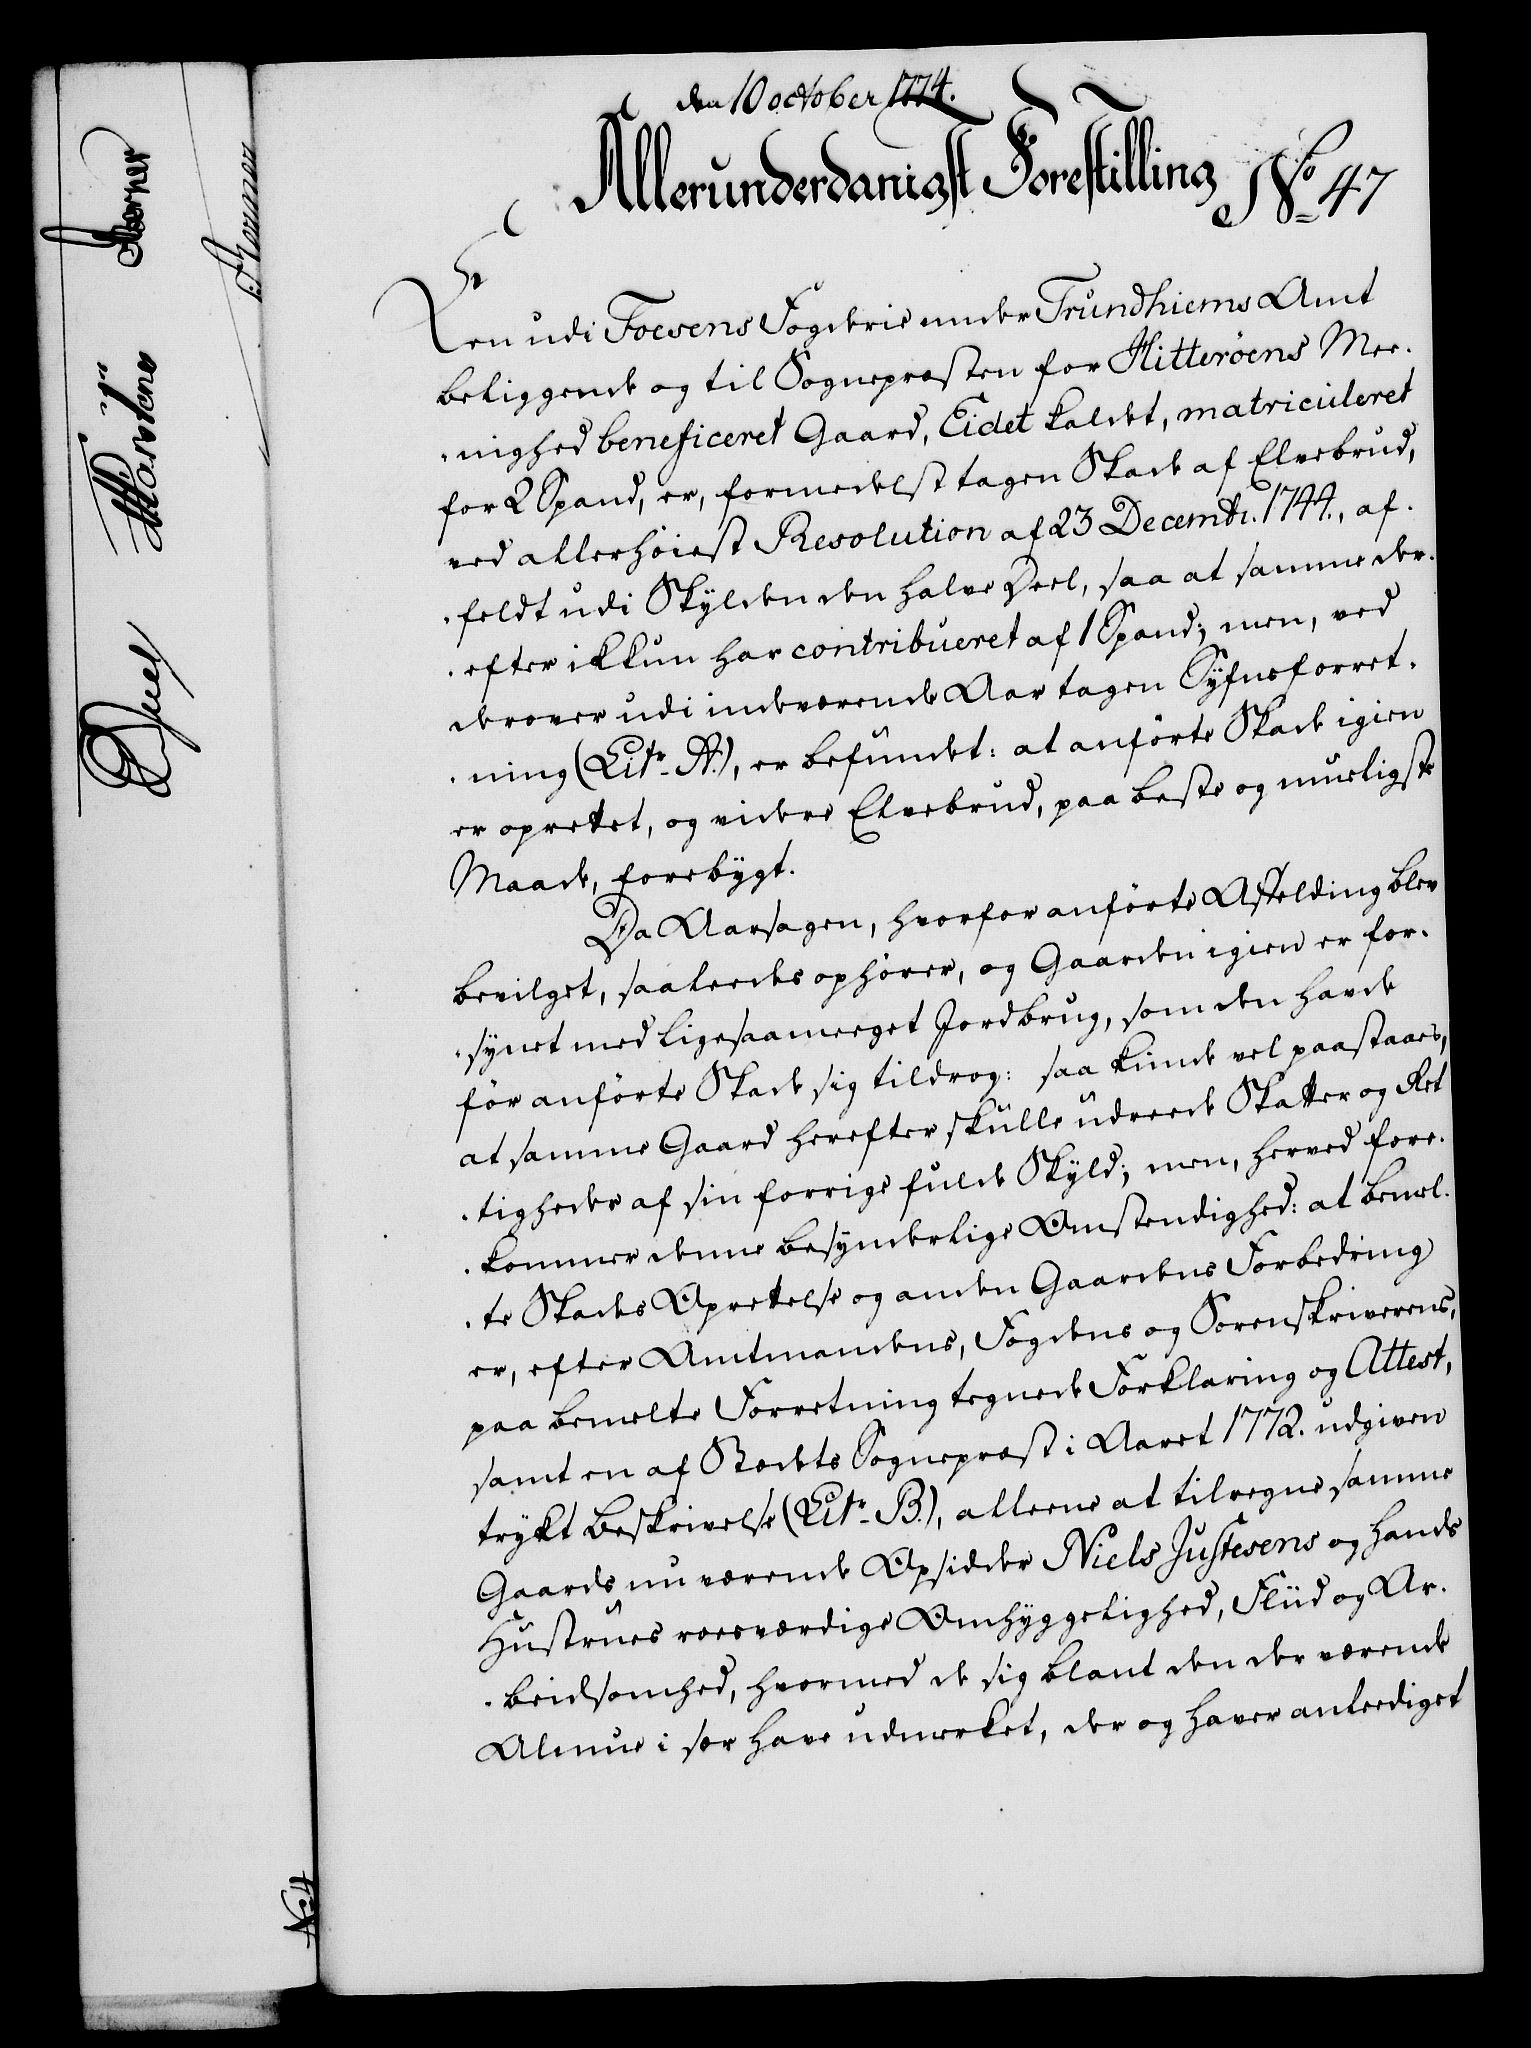 den 10 october 1774.
Allerunderdanigst Forestilling No 47
En udi Foesens Fogderie under Trundhiems Amt
beliggende og til Sognepresten for Hitterøens Mee-
-nighed beneficeret Gaard, Eidet kaldet, matriculeret
for 2 Spand, er, formedelst tagen Skade af Elvebrud,
ved allerhøiest Resolution af 23 Decembr. 1744., af-
-feldt udi Skylden den halve Deel, saa at samme der-
-efter ikkun har contribueret af 1 Spand; men, ved
derover udi indeværende Aar tagen Syfnsforret-
-ning (Litr. A.), er befundet: at anførte Skade igien
er oprettet, og videre Elvebrud, paa beste og mueligste
Maade, forebygt.
Da Aarsagen, hvorfor anførte Affelding blev
bevilget, saaleedes ophører, og Gaarden igien er for-
-synet med ligesaameeget Jordbrug, som den havde
før anførte Skade sig tildrog: saa kunde vel paastaaes,
at samme Gaard herefter skulle udreede Skatter og Ret
-tigheder af sin forrige fulde Skyld; men, herved fore-
-kommer denne besynderlige Omstendighed: at bemel-
-te Skades Oprettelse og anden Gaardens Forbedring
er, efter Amtmandens, Fogdens og Sorenskriverens,
paa bemelte Forretning tegnede Forklaring og Attest,
samt en af Stedets Sogneprest i Aaret 1772. udgiven
trykt Beskrivelse (Litr. B.), alleene at tilregne samme
Gaards nu værende Opsidder Niels Justesens og hands
Hustrues roesværdige Omhyggelighed, Fliid og Ar-
-beidsomhed, hvormed de sig blant den der værende
Almue i sær have udmerket, der og haver anleediget
Juel
Martens
No 4